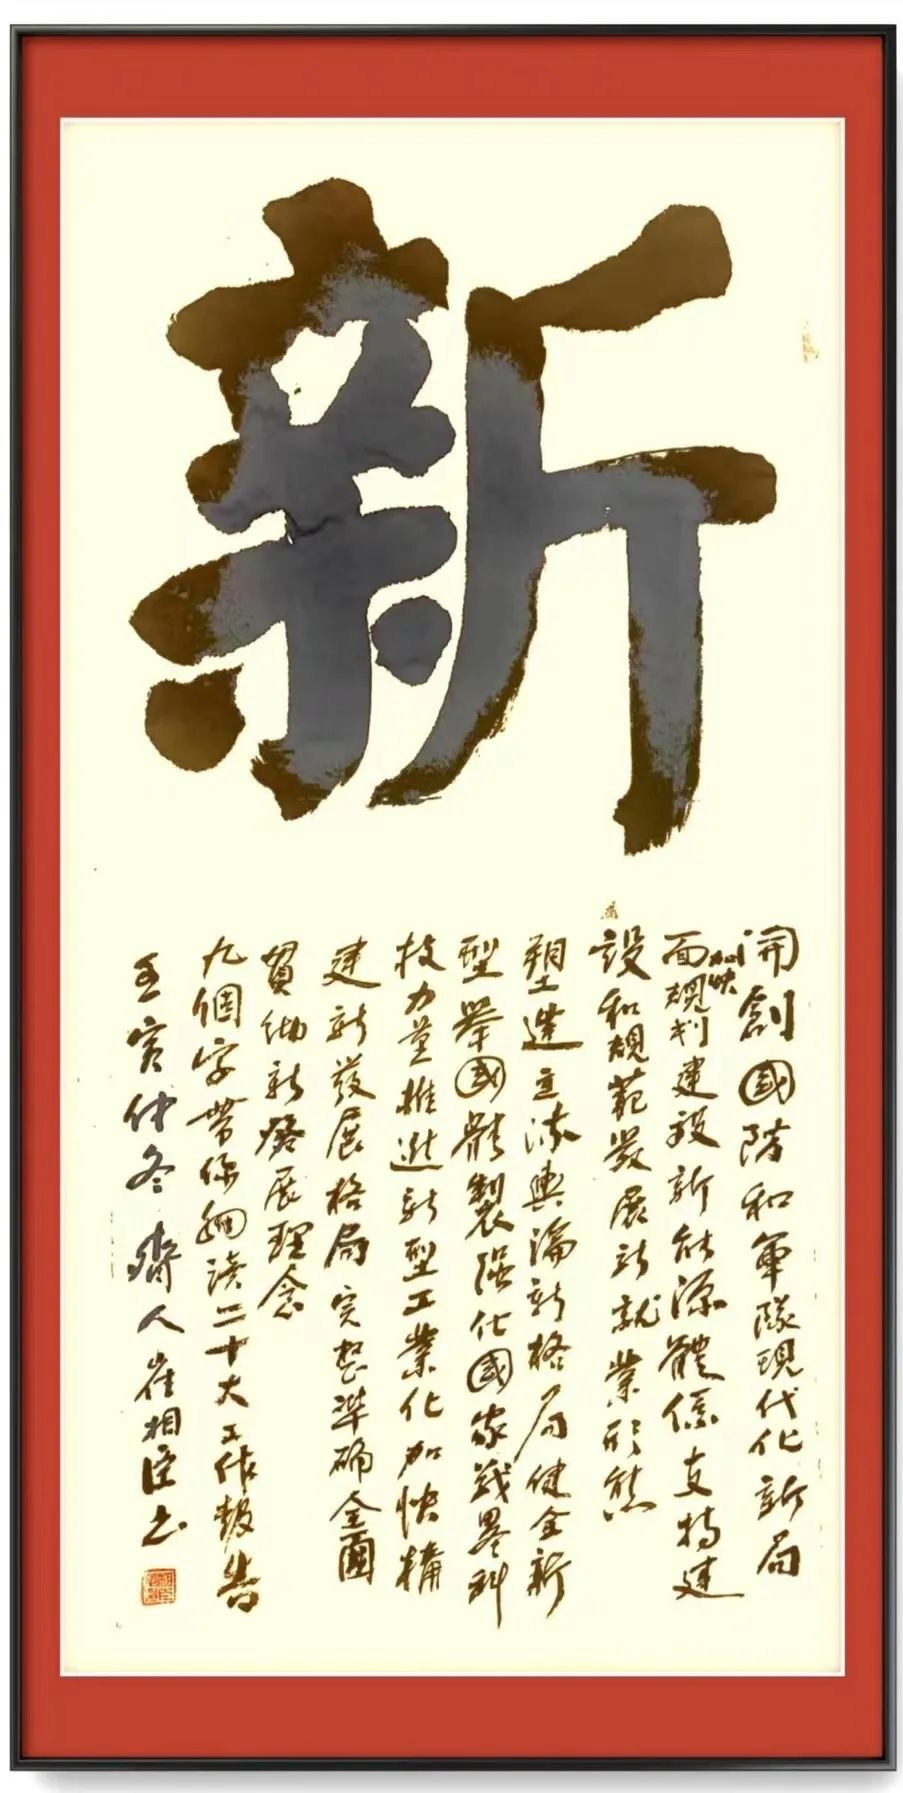 新
開創國防和軍隊現代化新局
面加快規划建設新能源體係支持建
設和規範發展新就業形態
塑造主流輿論新格局健全新
型舉國體製强化國家戰略科
技力量推進新型工業化加快構
建新發展格局完整準確全面
貫徹新發展理念
九個字帶你細讀二十大工作報告
壬寅仲冬齊人崔相臣书